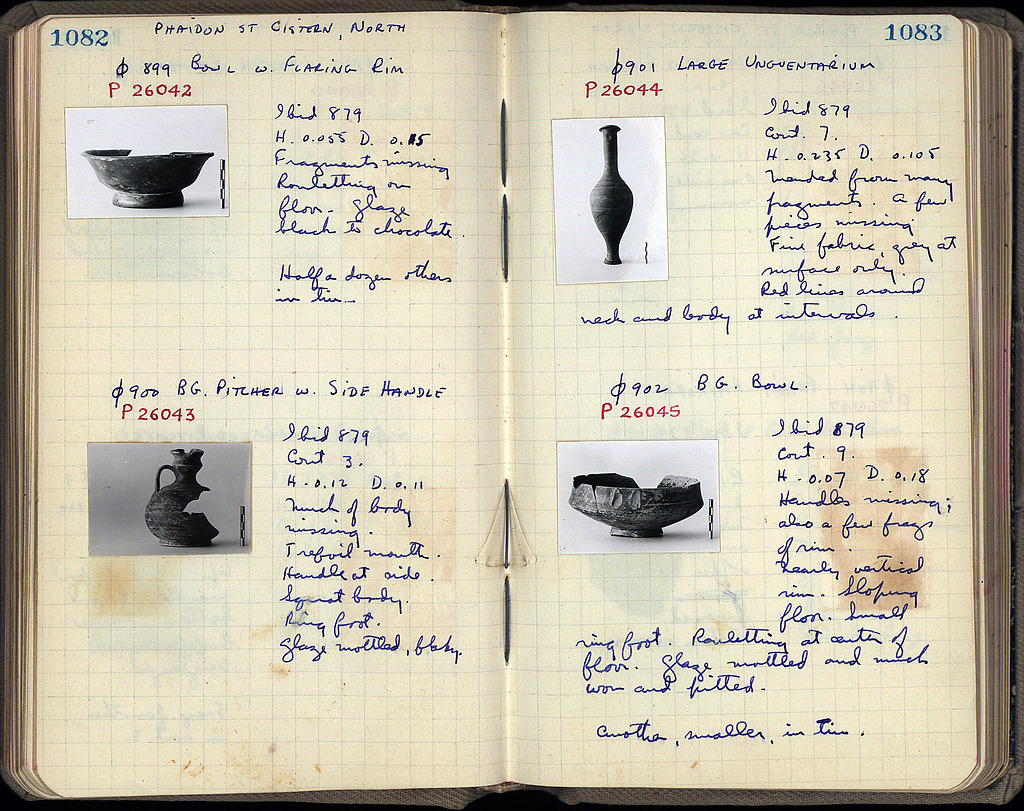 1082
PHAIDON ST CISTERN, NORTH
ϕ 899 BOWL W. FLARING RIM
P 26042
Ibid 879
H. 0.055 D. 0.15
Fragments missing
Rouletting on
floor. Glaze
black to chocolate.
Half a dozen others
in tin
ϕ900 BG. PITCHER W. SIDE HANDLE
P 26043
Ibid 879
Cont 3.
H. 0.12 D. 0.11
Much of body
missing.
Trefoil mouth.
Handle at side.
Squat body.
Ring foot.
Glaze mottled, flaky.
1083
ϕ901 LARGE UNGUENTARIUM
P 26044
Ibid 879
Cont. 7.
H. 0.235 D. 0.105
Mended from many
fragments. A few
pieces missing
Fine fabric, grey at
surface only.
Red lines around
neck and body at intervals.
ϕ902 BG. BOWL.
P 26045
Ibid 879
Cont. 9.
H. 0.07 D. 0.18
Handles missing;
also a few frags
of rim.
Nearly vertical
rim. Sloping
floor. Small
ring foot. Rouletting at center of
floor. Glaze mottled and much
worn and pitted.
Another, smaller, in tin.